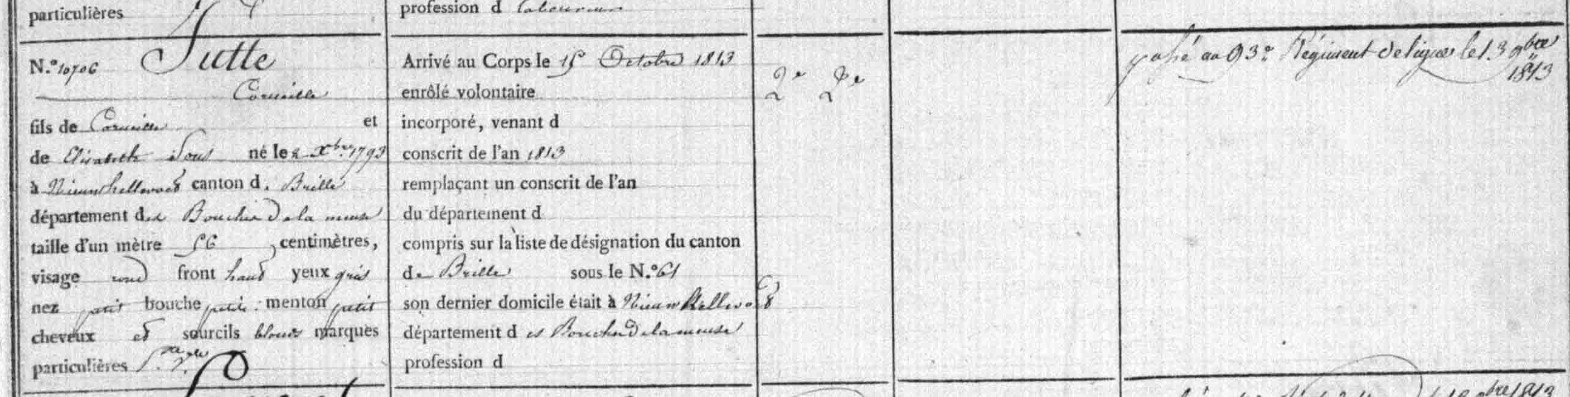 particulières
profession d laboureur
N.° 10706 Sutte
Corneille
fils de Corneille et
de Elisabeth né le 2 Xbre 1793
à Nieuwhellevoet canton d. Brille
département des Bouches de la meuse
taille d'un mètre 56 centimètres,
visage rond front haut yeux gris
nez petit bouche petite menton petit
cheveux et sourcils blonds marques
particulières
Arrivé au Corps le 15 Octobre 1813
enrôlé volontaire
incorporé, venant d
conscrit de l'an 1813
remplaçant un conscrit de l'an
du département d
compris sur la liste de désignation du canton
de Brille sous le N.° 61
son dernier domicile était à Nieuwhellevoet
département des Bouches de la meuse
profession d
2e 2e
passé au 93e Régiment de ligne le 13 9bre
1813